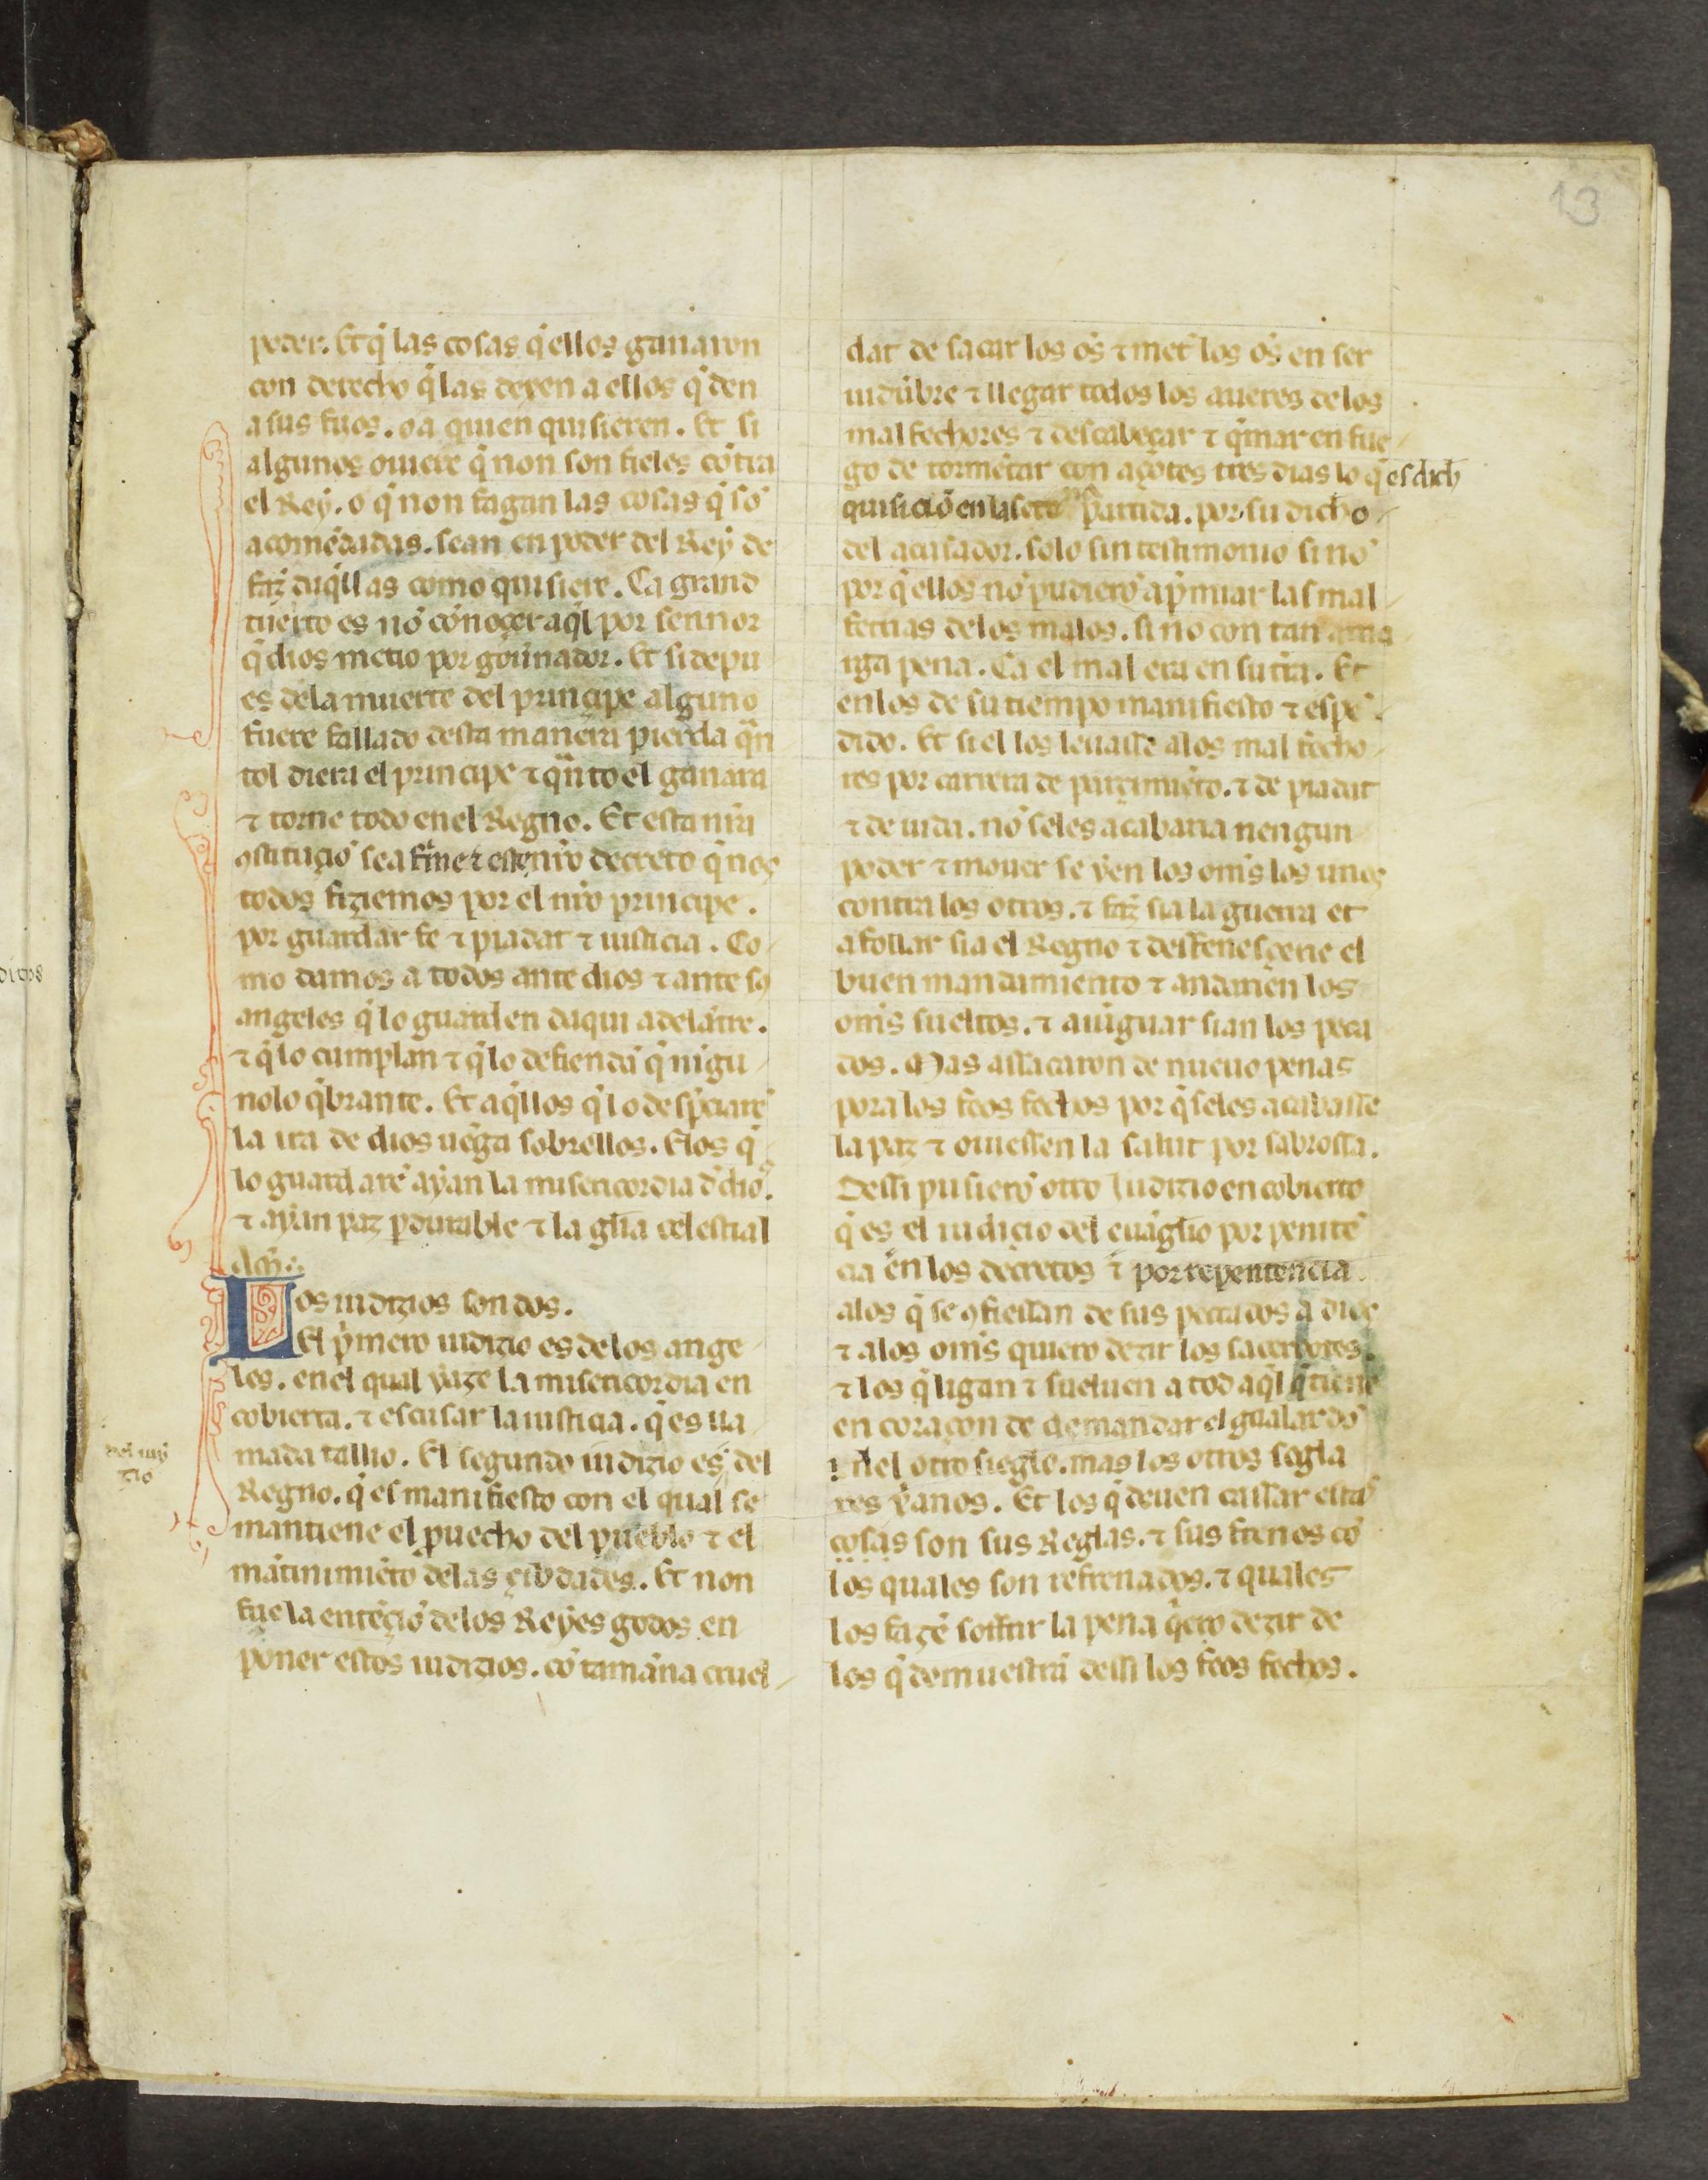 13
poder. Et q̃ las cosas q̃ ellos ganaron
con derecho q̃ las dexen a ellos q̃ den
a sus fijos. o a quien quisieren. Et si
algunos ouierẽ q̃ non son fieles cõtra
el Rey. o q̃ non fagan las cosas q̃ sõ
acomẽdadas. sean en poder del Rey de
faz̃ daq̃llas como quisiere. Ca grand
tuerto es nõ conoçer aq̃l por sennor
q̃ dios metio por gouͥnador. Et si depu
es dela muerte del principe alguno
fuere fallado desta manera pierda q̃n
tol diera el principe ⁊ q̃nto el ganara
⁊ torne todo en el Regno. Et esta nr̃a
ꝯstituçiõ sea firme ⁊ este nr̃o decreto q̃ nos
todos fiziemos por el nr̃o principe.
por guardar fe ⁊ piadat ⁊ iusticia. Co
mo damos a todos ante dios ⁊ ante sꝯ
angeles q̃ lo guarden daqui adelãtre.
⁊ q̃ lo cumplan ⁊ q̃ lo defiendã q̃ nigu
nolo q̃brante. Et aq̃llos q̃ lo despͨiarẽ
la ira de dios uẽga sobrellos. Elos q̃
lo guardarẽ ayan la misericordia d̃ dios.
⁊ ayan paz ꝑdurable ⁊ la gl̃ia celestial
Los iudizios son dos.
El pͥmero iudizio es de los ange
les. en el qual yaze la misericordia en
cobierta. ⁊ escusar la iusticia. q̃ es lla
mada tallio. El segundo iudizio es del
Regno. q̃ es manifiesto con el qual se
mantiene el ꝓuecho del pueblo ⁊ el
mãtinimiẽto delas çibdades. Et non
fue la entẽçiõ de los Reyes godos en
poner estos iudizios. cõ tamãna cruel
dat de sacar los oͥs ⁊ met̃ los oͥs en ser
uidũbre ⁊ llegar todos los aueres de los
mal fechores ⁊ descabeçar ⁊ q̃mar en fue
go de tormẽtar con açotes tres dias lo q̃ es dich
quisiciõ en la sete partida. por su dicho
del acusador. solo sin testimonio si nõ
por q̃ ellos nõ pudierõ apͥmiar las mal
fetrias de los malos. si no con tan ama
rga pena. Ca el mal era en su tr̃a. Et
en los de su tiempo manifiesto ⁊ espẽ
dido. Et si el los leuasse alos mal fecho
res por carrera de parçimiẽto. ⁊ de piadat
⁊ de uida. nõ seles acabaria nengun
poder ⁊ mouer se yen los om̃s los unos
contra los otros. ⁊ faz̃ sia la guerra et
afollar sia el Regno ⁊ desfenesçerie el
buen mandamiento ⁊ andarien los
om̃s sueltos. ⁊ auͥguar sian los peca
dos. Mas assacaron de nueuo penas
pora los feos fechos por q̃ seles acabasse
la paz ⁊ ouiessen la salut por sabrosia.
Dessi pusierõ otro Iudizio encobierto
q̃ es el iudiçio del euãgl̃io por penitẽ
cia en los decretos ⁊ por repentencia
alos q̃ se ꝯfiessan de sus peccados a dios
⁊ alos om̃s quiero dezir los sacerdotes.
⁊ los q̃ ligan ⁊ sueluen a tod aq̃l q̃ tiene
en coraçon de demandar el gualardõ
nel otro sieglo. mas los otros segla
res yanos. Et los q̃ deuen cassar estas
cosas son sus Reglas. ⁊ sus frenos cõ
los quales son refrenados. ⁊ quales
los fazẽ soffrir la pena q̃ero dezir de
los q̃ demuestrã dessi los feos fechos.